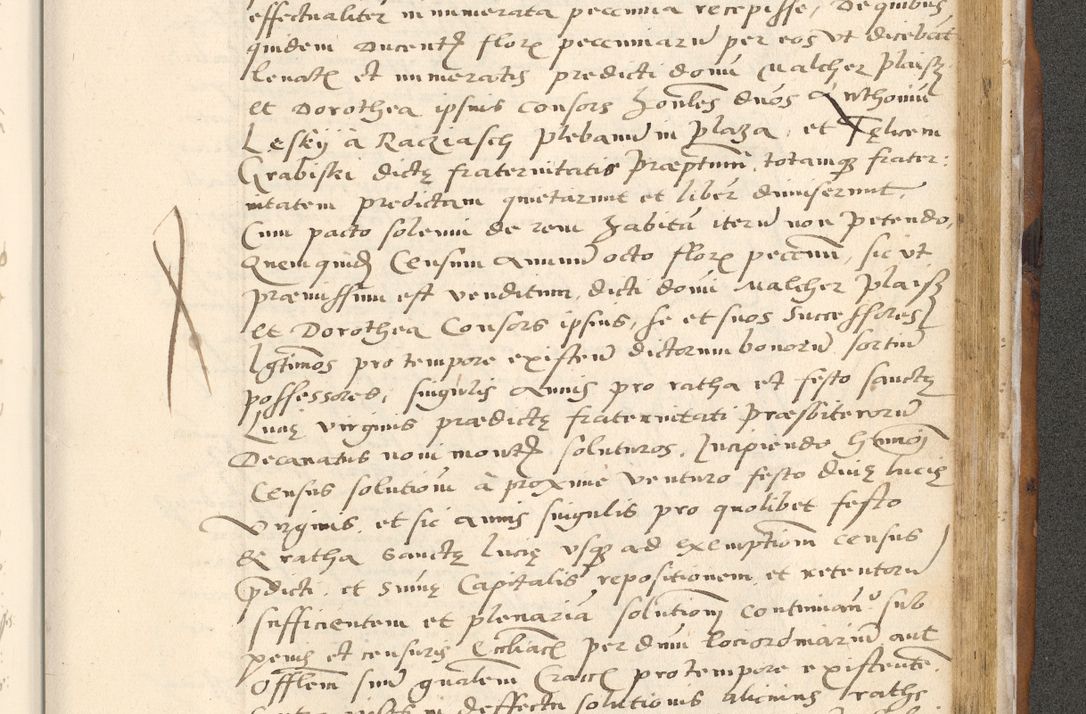 effectualiter in numerata peccunia recepisse, De quibus
quidem Ducent flor peccuniarū per eos ut dicebāt
leuat et numeratis predicti domī Malcher Plaisz
et Dorothea ipsius Consors Honles duos Anthoniū
Lesky à Raciasch plebanū in Plaza, et Felicem
Grabiski dictę fraternitatis Præptum, totamq frater:
nitatem predictam quietarunt et liber dimiserunt,
Cum pacto solenni de rem habitā iterū non petendo,
Quemquid Censum Annuū octo flor peccuni, sic ut
præmissum est venditum, dicti domī Malcher Plaisz
et Dorothea Consors ipsius, se et suos Successores
lgtimos pro tempore existen dictorum bonorū sortiū
possessores, singulis Annis pro ratha et festo sanctę
Lucię virginis prædictę fraternitati Præsbiterorū
Decanatus novi mont soluturos, Incipiendo hmōi
Census solutionē à proximè venturo festo Diuę Lucię
Virginis, et sic Annis singulis pro quolibet festo
et ratha Sanctę Lucię usq ad exemptionē Census
pdicti, et summę Capitalis repositionem, et retentorū
sufficientem et plenariā solutionē continuand sub
penis et censuris Ecclīac per Dnum loci ordinariū aut
Offlem suū gnalem Crac pro tempore existente,
in deffectu solutionis alicuius rathę